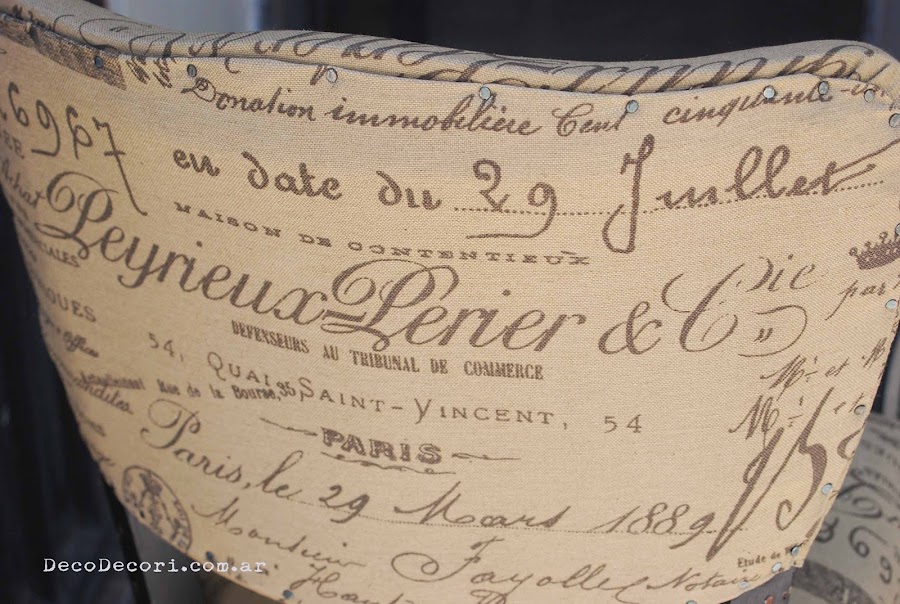 Donation immobilière Cent cinquante
6967
en date du 29 Juillet
MAISON DE CONTENTIEUX
Peyrieux-Perier & Cie
par
DEFENSEURS AU TRIBUNAL DE COMMERCE
54, QUAI SAINT-VINCENT, 54
Rue de la Bourse, 35,
PARIS
Mr et M
Paris, le 29 Mars 1889
Monsieur
Fayolle Notaire
Etude de
DecoDecori.com.ar